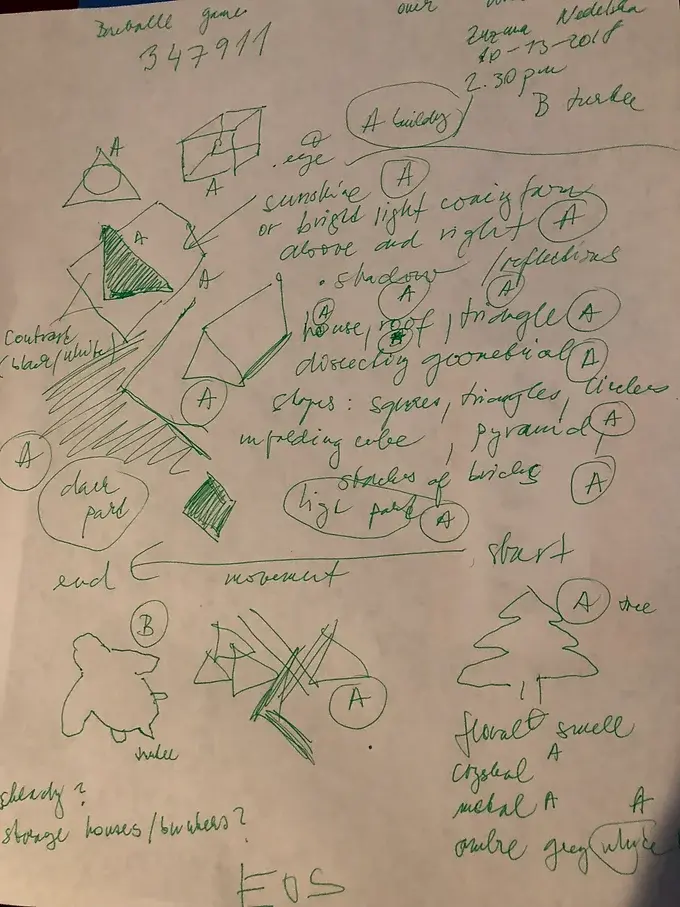 games
over
347911
10-13-2018
2.30 pm
A building
B turkee
A
A
A
edge
sunshine A
or bright light coming from
above and right A
A
A
• shadow / reflections
A A A
house, roof, triangle A
B
contrast
(black/white)
dissecting geometrical A
shapes: squares, triangles, circles
unfolding cube, pyramid, A
A
stacks of bricks A
A
dark
part
light part A
start
end movement
B
A
A tree
turkee
floral smell
crystal A
metal A A
ombre grey white
steady?
storage houses/bunkers?
EOS